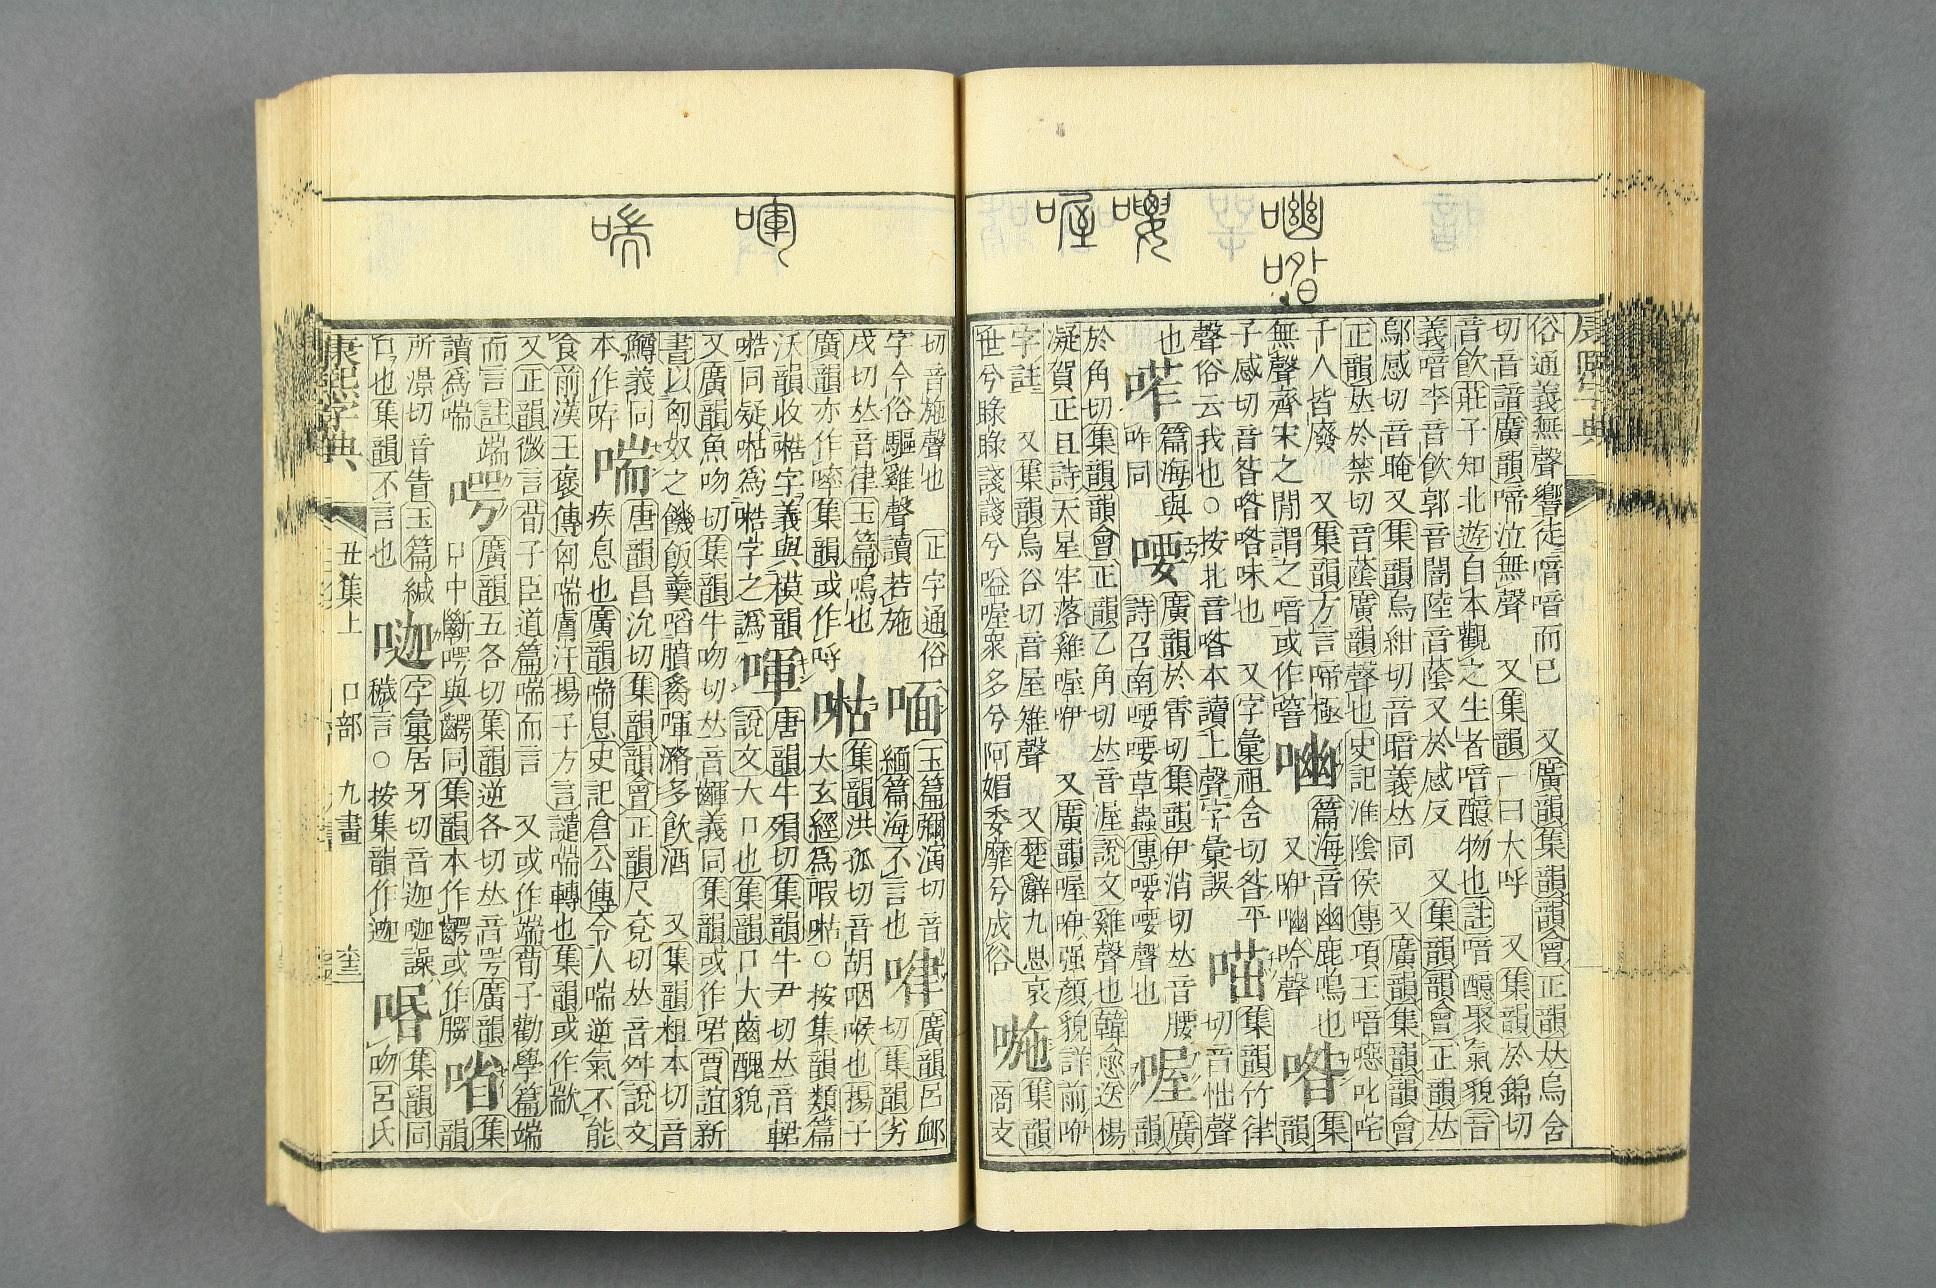 喟
喈
喓
喔
喗
喘
俗通義無聲響徒喑喑而已　又廣韻集韻韻會正韻𠀤烏含
切音諳廣韻啼泣無聲　又集韻一曰大呼　又集韻於錦切
音飮莊子知北遊自本觀之生者喑醷物也註喑醷聚氣貌言
義喑李音飮郭音闇陸音蔭又於感反　又集韻韻會正韻𠀤
鄔感切音晻又集韻烏紺切音暗義𠀤同　又廣韻集韻韻會
正韻𠀤於禁切音蔭廣韻聲也史記淮陰侯傳項王喑噁叱咤
千人皆廢　又集韻方言啼極
無聲齊宋之閒謂之喑或作窨
篇海音幽鹿鳴也
又咿𠷔吟聲
喒
集
韻
子感切音昝喒喒味也　又字彙祖含切昝平
聲俗云我也○按北音喒本讀上聲字彙誤
㗕
集韻竹律
切音怞聲
也
喏
篇海與
咋同
喓
廣韻於霄切集韻伊消切𠀤音腰
詩召南喓喓草蟲傳喓喓聲也
喔
廣
韻
於角切集韻韻會正韻乙角切𠀤音渥說文雞聲也韓愈送楊
凝賀正且詩天星牢落雞喔咿　又廣韻喔咿强顏貌詳前咿
字註　又集韻烏谷切音屋雉聲　又楚辭九思哀
世兮睩睩諓諓兮嗌喔衆多兮阿媚委靡兮成俗
㖢
集韻
商支
切音施聲也　正字通俗
字今俗驅雞聲讀若施
喕
玉篇彌演切音
緬篇海不言也
㖦
廣韻呂䘏
切集韻劣
戌切𠀤音律玉篇鳴也
廣韻亦作㗚集韻或作哷
㗅
集韻洪孤切音胡咽喉也揚子
太玄經爲嘏㗅○按集韻類篇
沃韻收㗅字義與模韻
㗅同疑㗅爲㗅字之譌
喗
唐韻牛殞切集韻牛尹切𠀤音輑
說文大口也集韻口大齒醜貌
又廣韻魚吻切集韻牛吻切𠀤音齳義同集韻或作㖥賈誼新
書以匈奴之饑飯羹啗膹炙喗㵾多飮酒　又集韻粗本切音
鱒義同
本作㖊
喘
唐韻昌沇切集韻韻會正韻尺兗切𠀤音舛說文
疾息也廣韻喘息史記倉公傳令人喘逆氣不能
食前漢王褒傳匈喘膚汗揚子方言讉喘轉也集韻或作歂
又正韻微言荀子臣道篇喘而言　又或作端荀子勸學篇端
而言註端
讀爲喘
㗁
廣韻五各切集韻逆各切𠀤音咢廣韻
口中斷㗁與齶同集韻本作𪘐或作㬽
㗂
集
韻
所㵐切音眚玉篇緘
口也集韻不言也
𠸎
字彙居牙切音迦𠸎譟
穢言○按集韻作迦
㖧
集韻同
吻呂氏
康熙字典
丑集上
口部　九畫
康熙字典